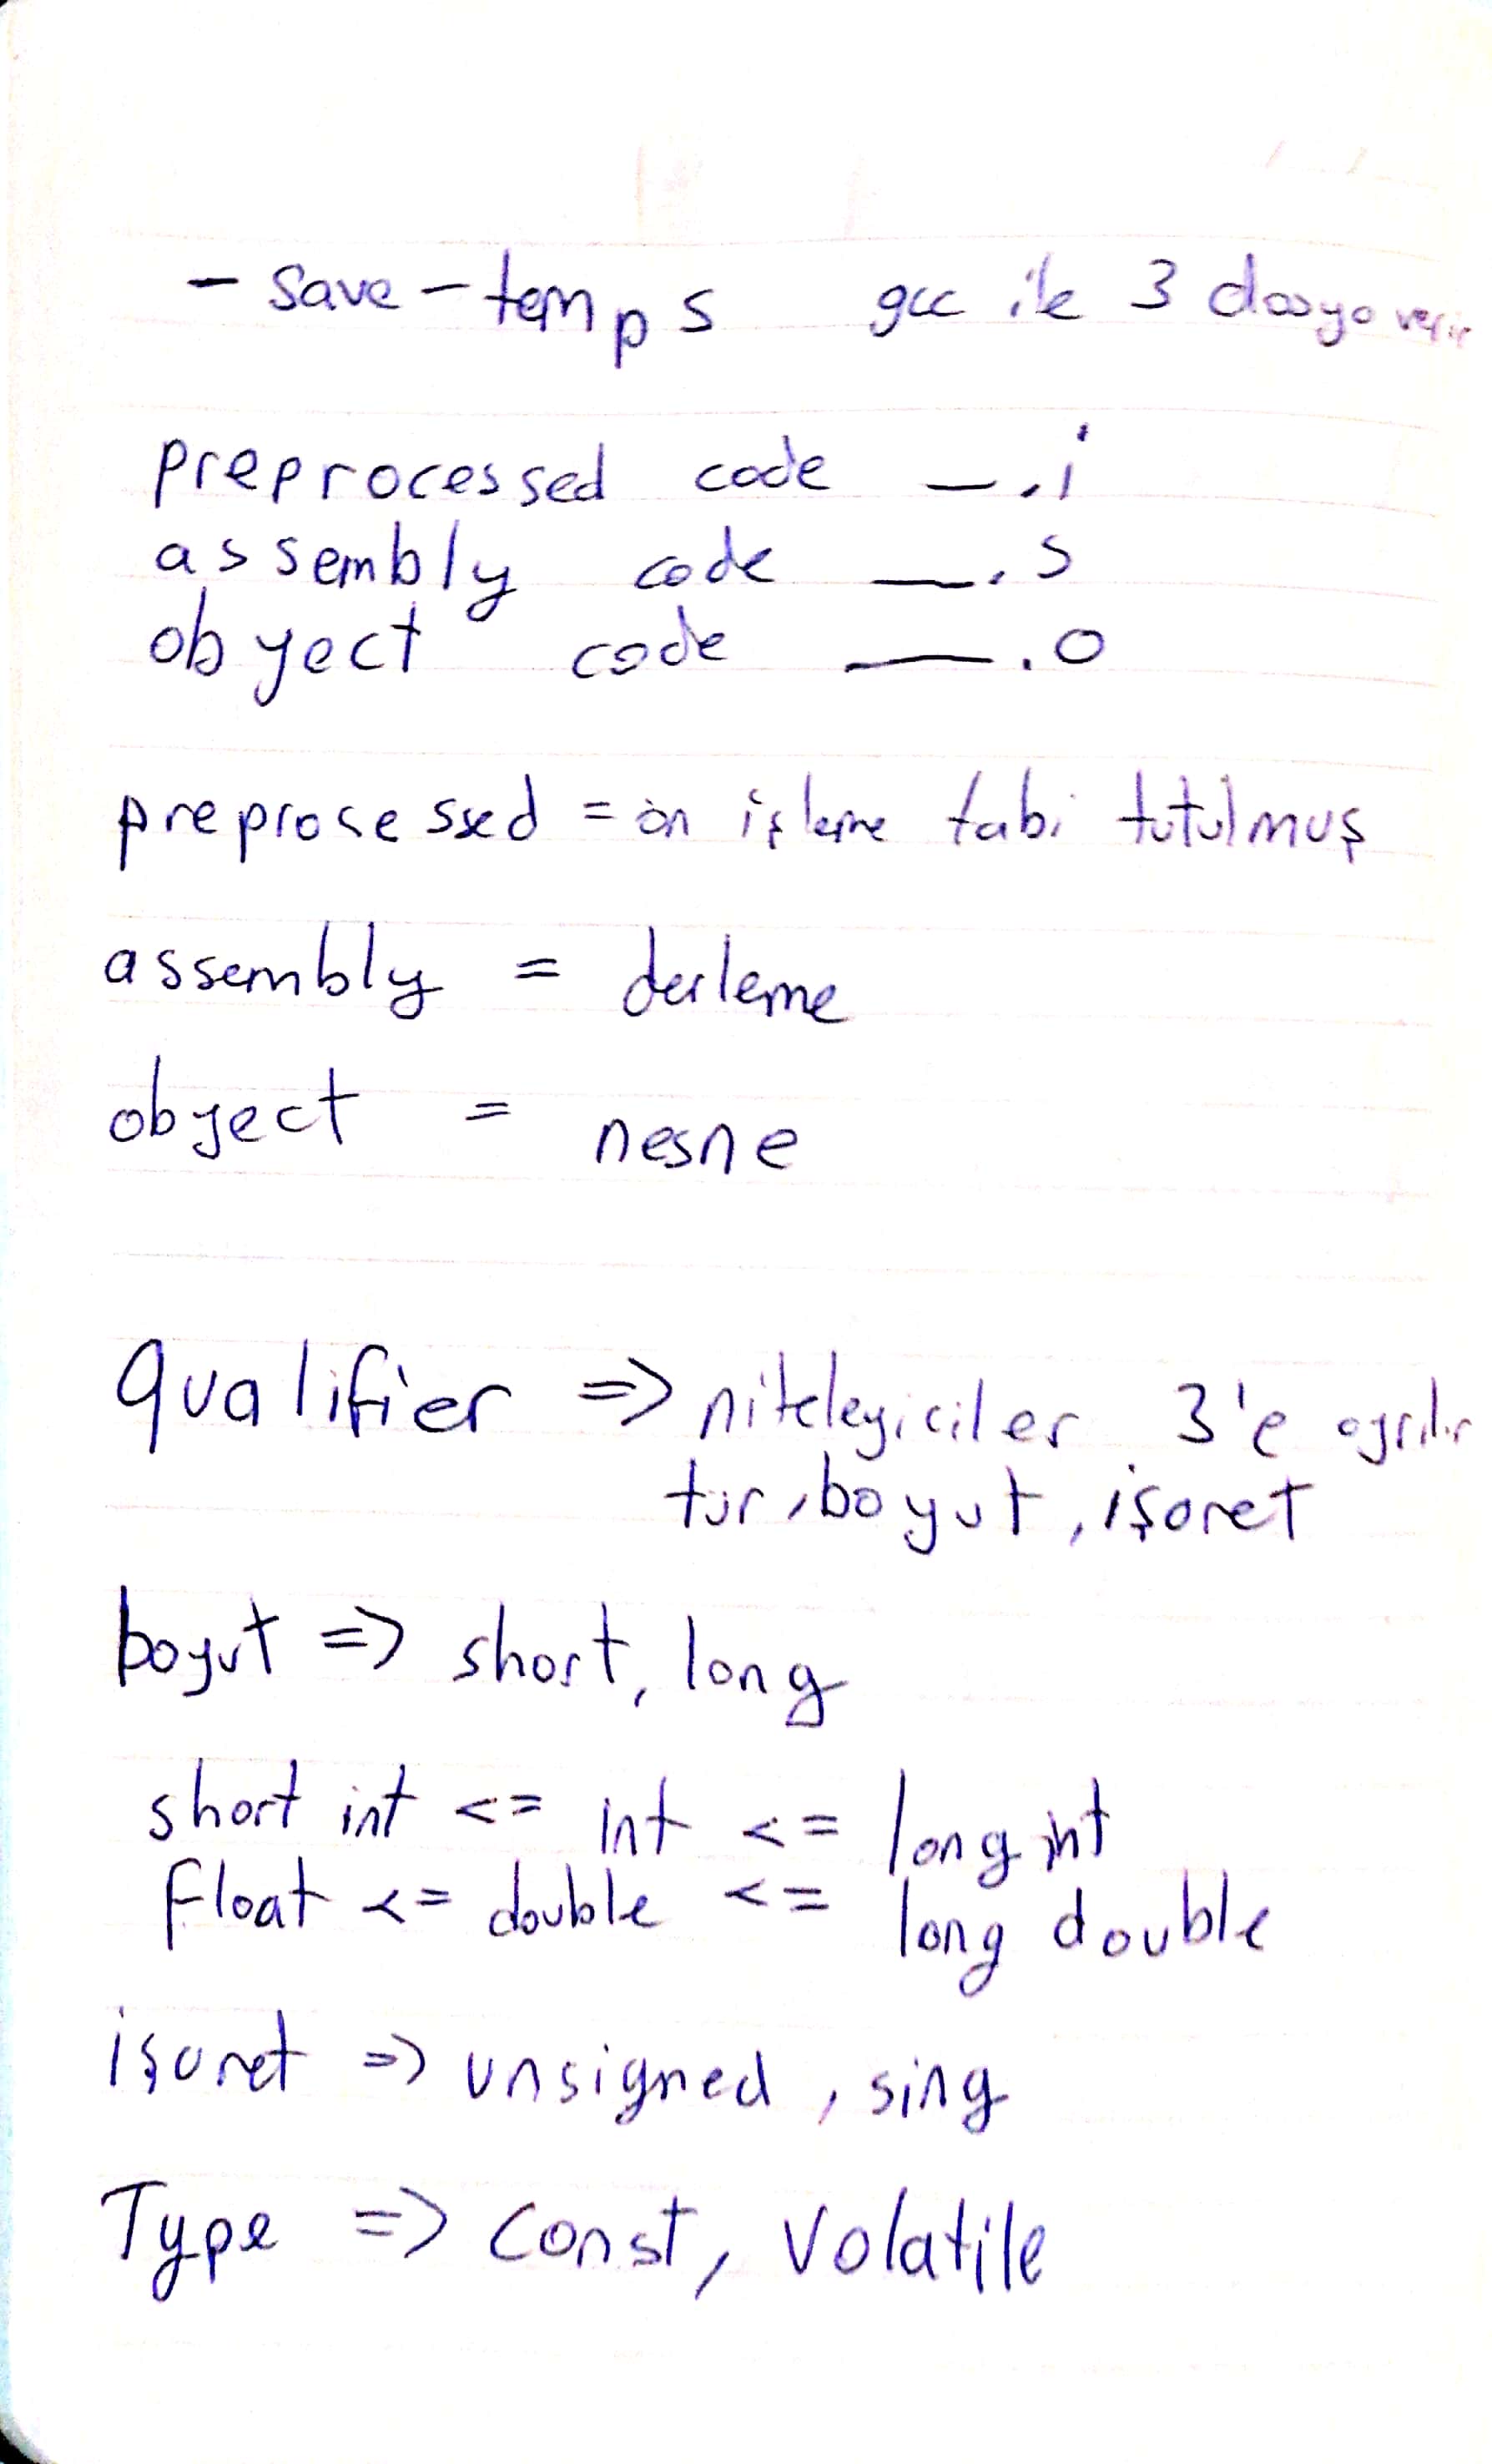 - save-temps gcc ile 3 dosya verir
preprocessed code __.i
assembly code __.s
obyect code __.o
preprosessed = ön işleme tabi tutulmuş
assembly = derleme
obyect = nesne
qualifier => niteleyiciler 3'e ayrılır
tür, boyut, işaret
boyut => short, long
short int <= int <= long int
float <= double <= long double
işaret => unsigned, sing
Type => const, volatile